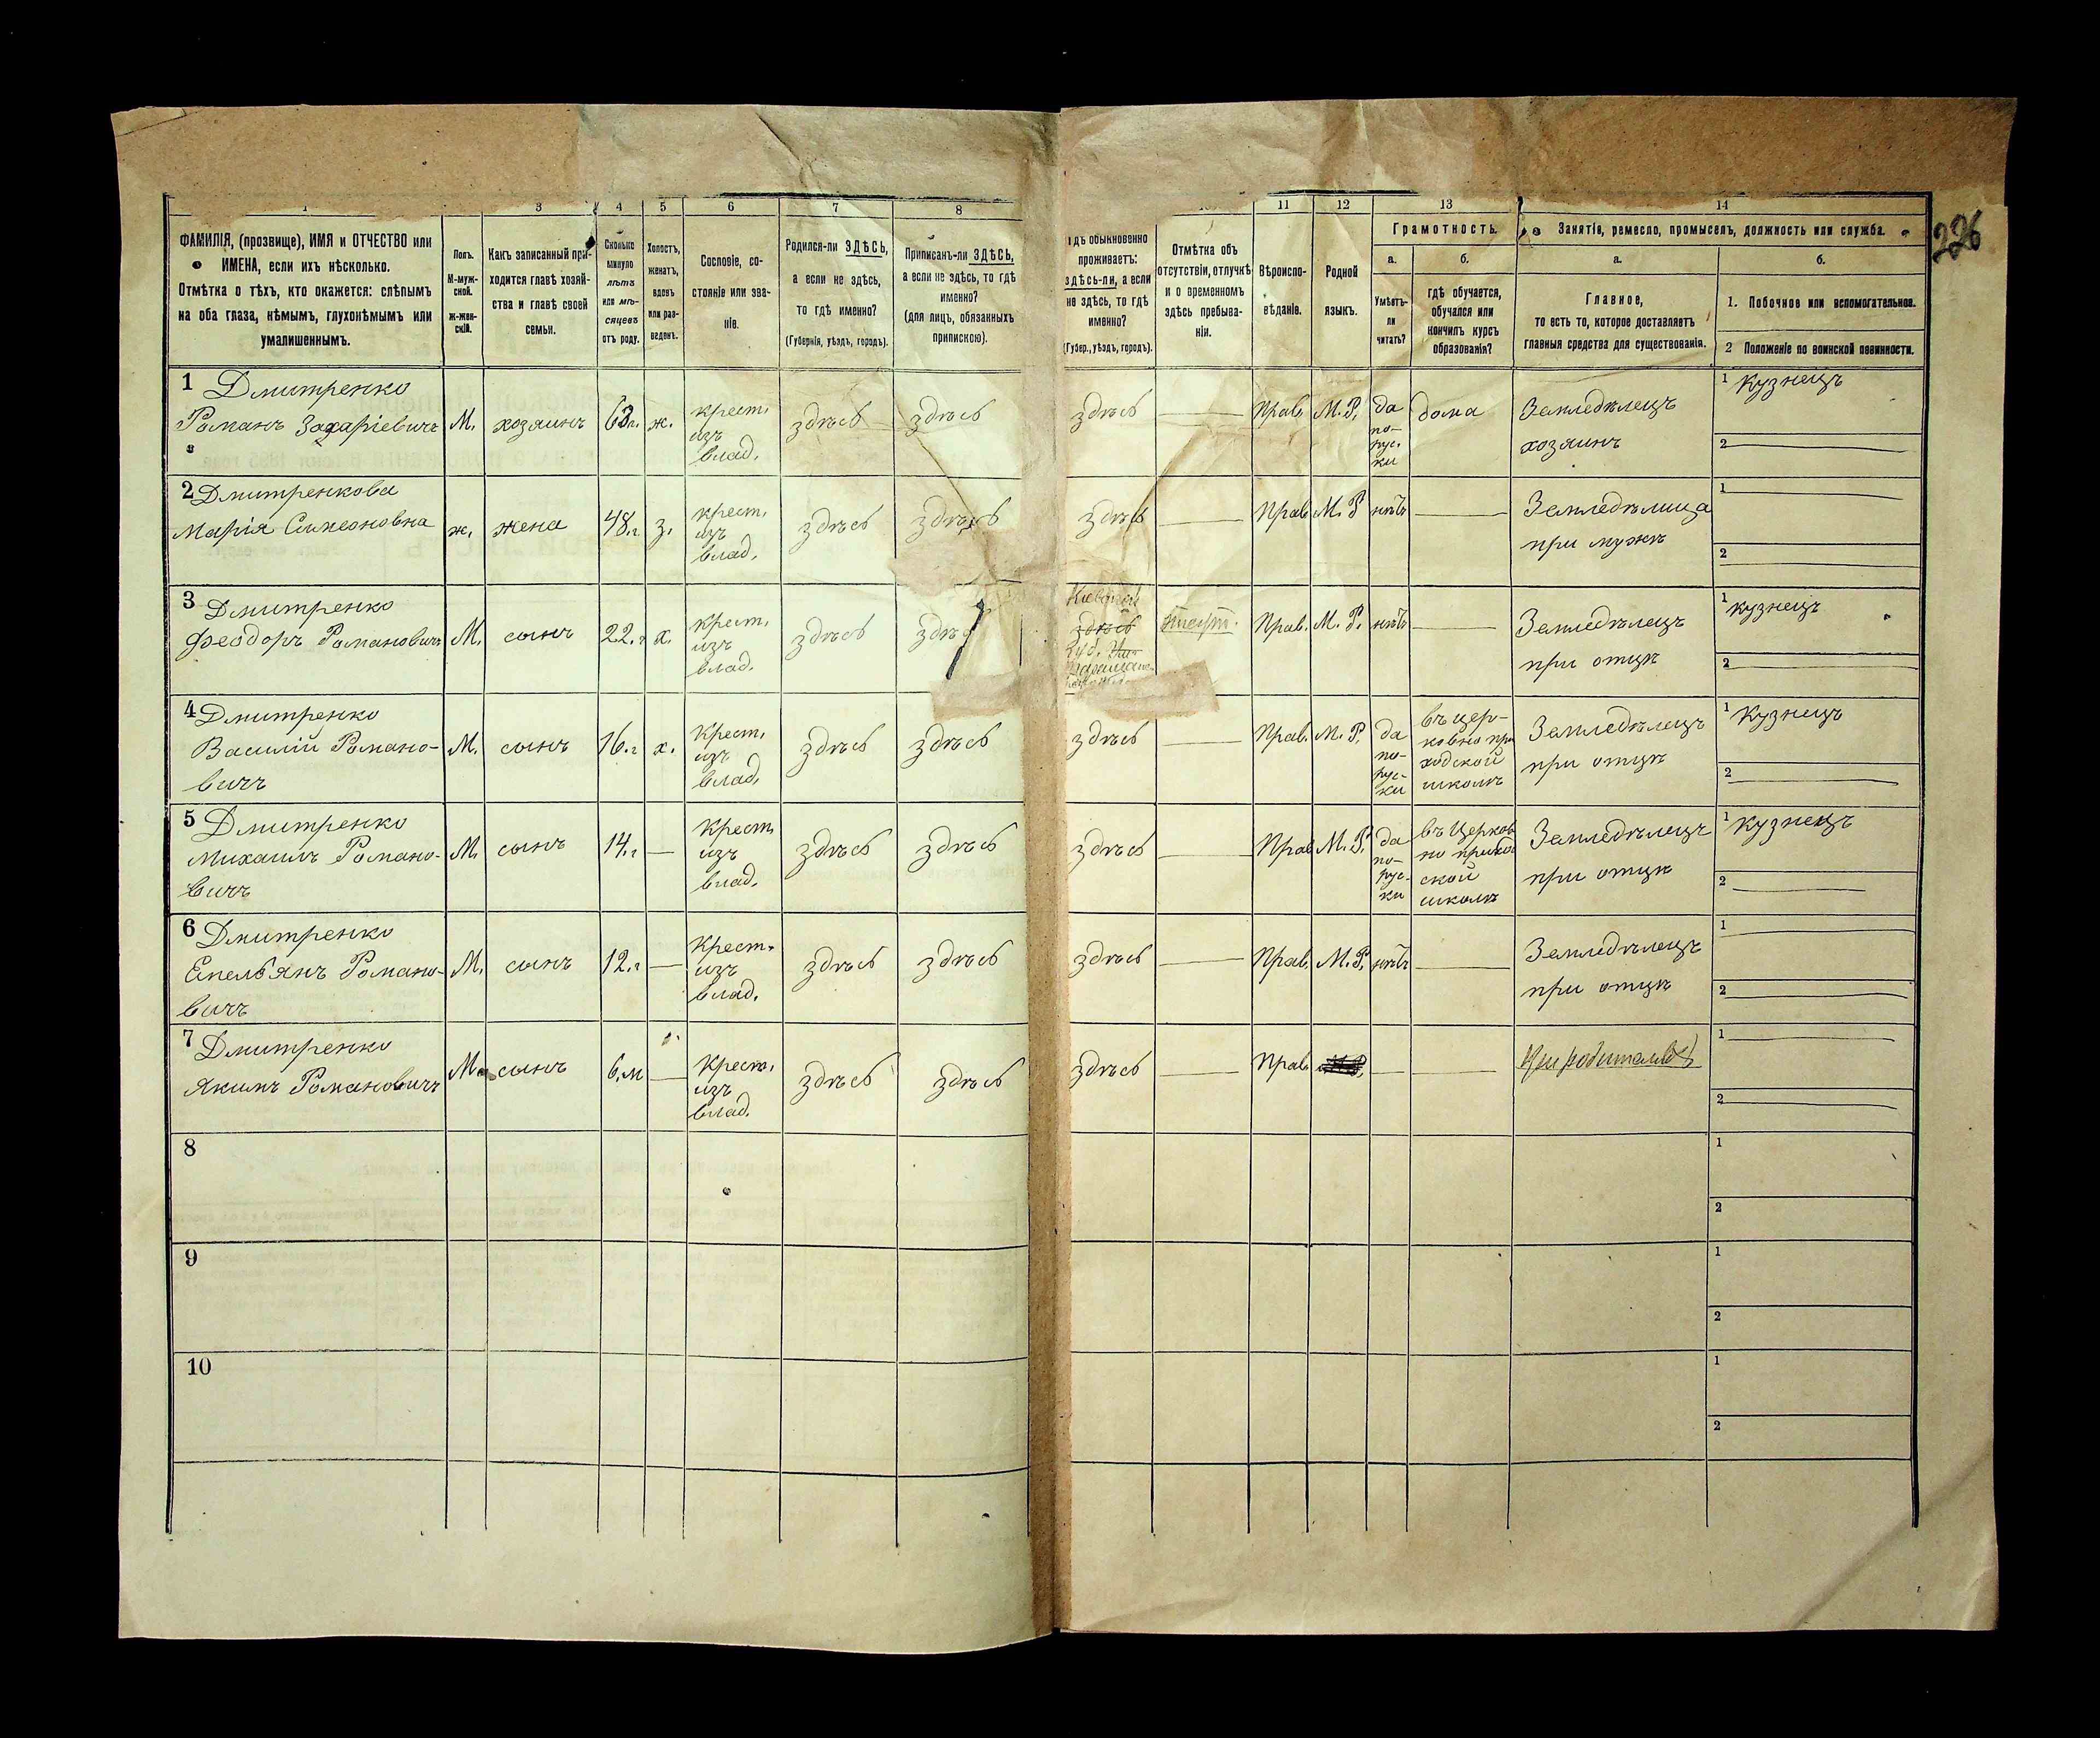 3 4 5 6 7 8
11 12 13 14
226
ФАМИЛІЯ, (прозвище), ИМЯ и ОТЧЕСТВО или
ИМЕНА, если ихъ нѣсколько.
Отмѣтка о тѣхъ, кто окажется: слѣпымъ
на оба глаза, нѣмымъ, глухонѣмымъ или
умалишеннымъ.
Полъ.
М-муж-
ской.
ж-жен-
скій.
Какъ записанный при-
ходится главѣ хозяй-
ства и главѣ своей
семьи.
Сколько
минуло
лѣтъ
или мѣ-
сяцевъ
отъ роду.
Холостъ,
женатъ,
вдовъ
или раз-
веденъ.
Сословіе, со-
стояніе или зва-
ніе.
Родился-ли ЗДѢСЬ,
а если не здѣсь,
то гдѣ именно?
(Губернія, уѣздъ, городъ).
Приписанъ-ли ЗДѢСЬ,
а если не здѣсь, то гдѣ
именно?
(для лицъ, обязанныхъ
припискою).
обыкновенно
проживаетъ:
здѣсь-ли, а если
не здѣсь, то гдѣ
именно?
(Губер., уѣздъ, городъ).
Отмѣтка объ
отсутствіи, отлучкѣ
и о временномъ
здѣсь пребыва-
ніи.
Вѣроиспо-
вѣданіе.
Родной
языкъ.
Грамотность.
а.
Умѣетъ-
ли
читать?
б.
гдѣ обучается,
обучался или
кончилъ курсъ
образованія?
Занятіе, ремесло, промыселъ, должность или служба.
а.
Главное,
то есть то, которое доставляетъ
главныя средства для существованія.
б.
1. Побочное или вспомогательное.
2 Положеніе по воинской повинности.
1 Дмитренко
Романъ Захаріевичъ
М.
хозяинъ
63 л.
ж.
крест.
изъ
влад.
здѣсь
здѣсь
здѣсь
Прав.
М. Р.
да
по-
рус-
ки
дома
Земледѣлецъ
хозяинъ
1 Кузнецъ
2
2 Дмитренкова
Марія Симеоновна
ж.
жена
48. л
з.
крест.
изъ
влад.
здѣсь
здѣсь
здѣсь
Прав
М. Р
нѣтъ
Земледѣлица
при мужѣ
1
2
3 Дмитренко
Феодоръ Романовичъ
М.
сынъ
22. г
х.
крест.
изъ
влад.
здѣсь
здѣсь
Кіевской
здѣсь
Прав.
М. Р.
нѣтъ
Земледѣлецъ
при отцѣ
1 Кузнецъ
2
4 Дмитренко
Василій Романо-
вичъ
М.
сынъ
16. г
х.
Крест.
изъ
влад.
здѣсь
здѣсь
здѣсь
Прав.
М. Р.
да
по-
рус-
ки
въ цер-
ковно при
ходской
школѣ
Земледѣлецъ
при отцѣ
1 Кузнецъ
2
5 Дмитренко
Михаилъ Романо-
вичъ
М.
сынъ
14. г
Крест.
изъ
влад.
здѣсь
здѣсь
здѣсь
Прав
М. Р.
да
по-
рус-
ки
въ Церков
но приход
ской
школѣ
Земледѣлецъ
при отцѣ
1 Кузнецъ
2
6 Дмитренко
Емельянъ Романо-
вичъ
М.
сынъ
12. г
Крест.
изъ
влад.
здѣсь
здѣсь
здѣсь
Прав.
М. Р.
нѣтъ
Земледѣлецъ
при отцѣ
1
2
7 Дмитренко
Якимъ Романовичъ
М
сынъ
6. м
Крест.
изъ
влад.
здѣсь
здѣсь
здѣсь
Прав.
при родителяхъ
1
2
8
1
2
9
1
2
10
1
2